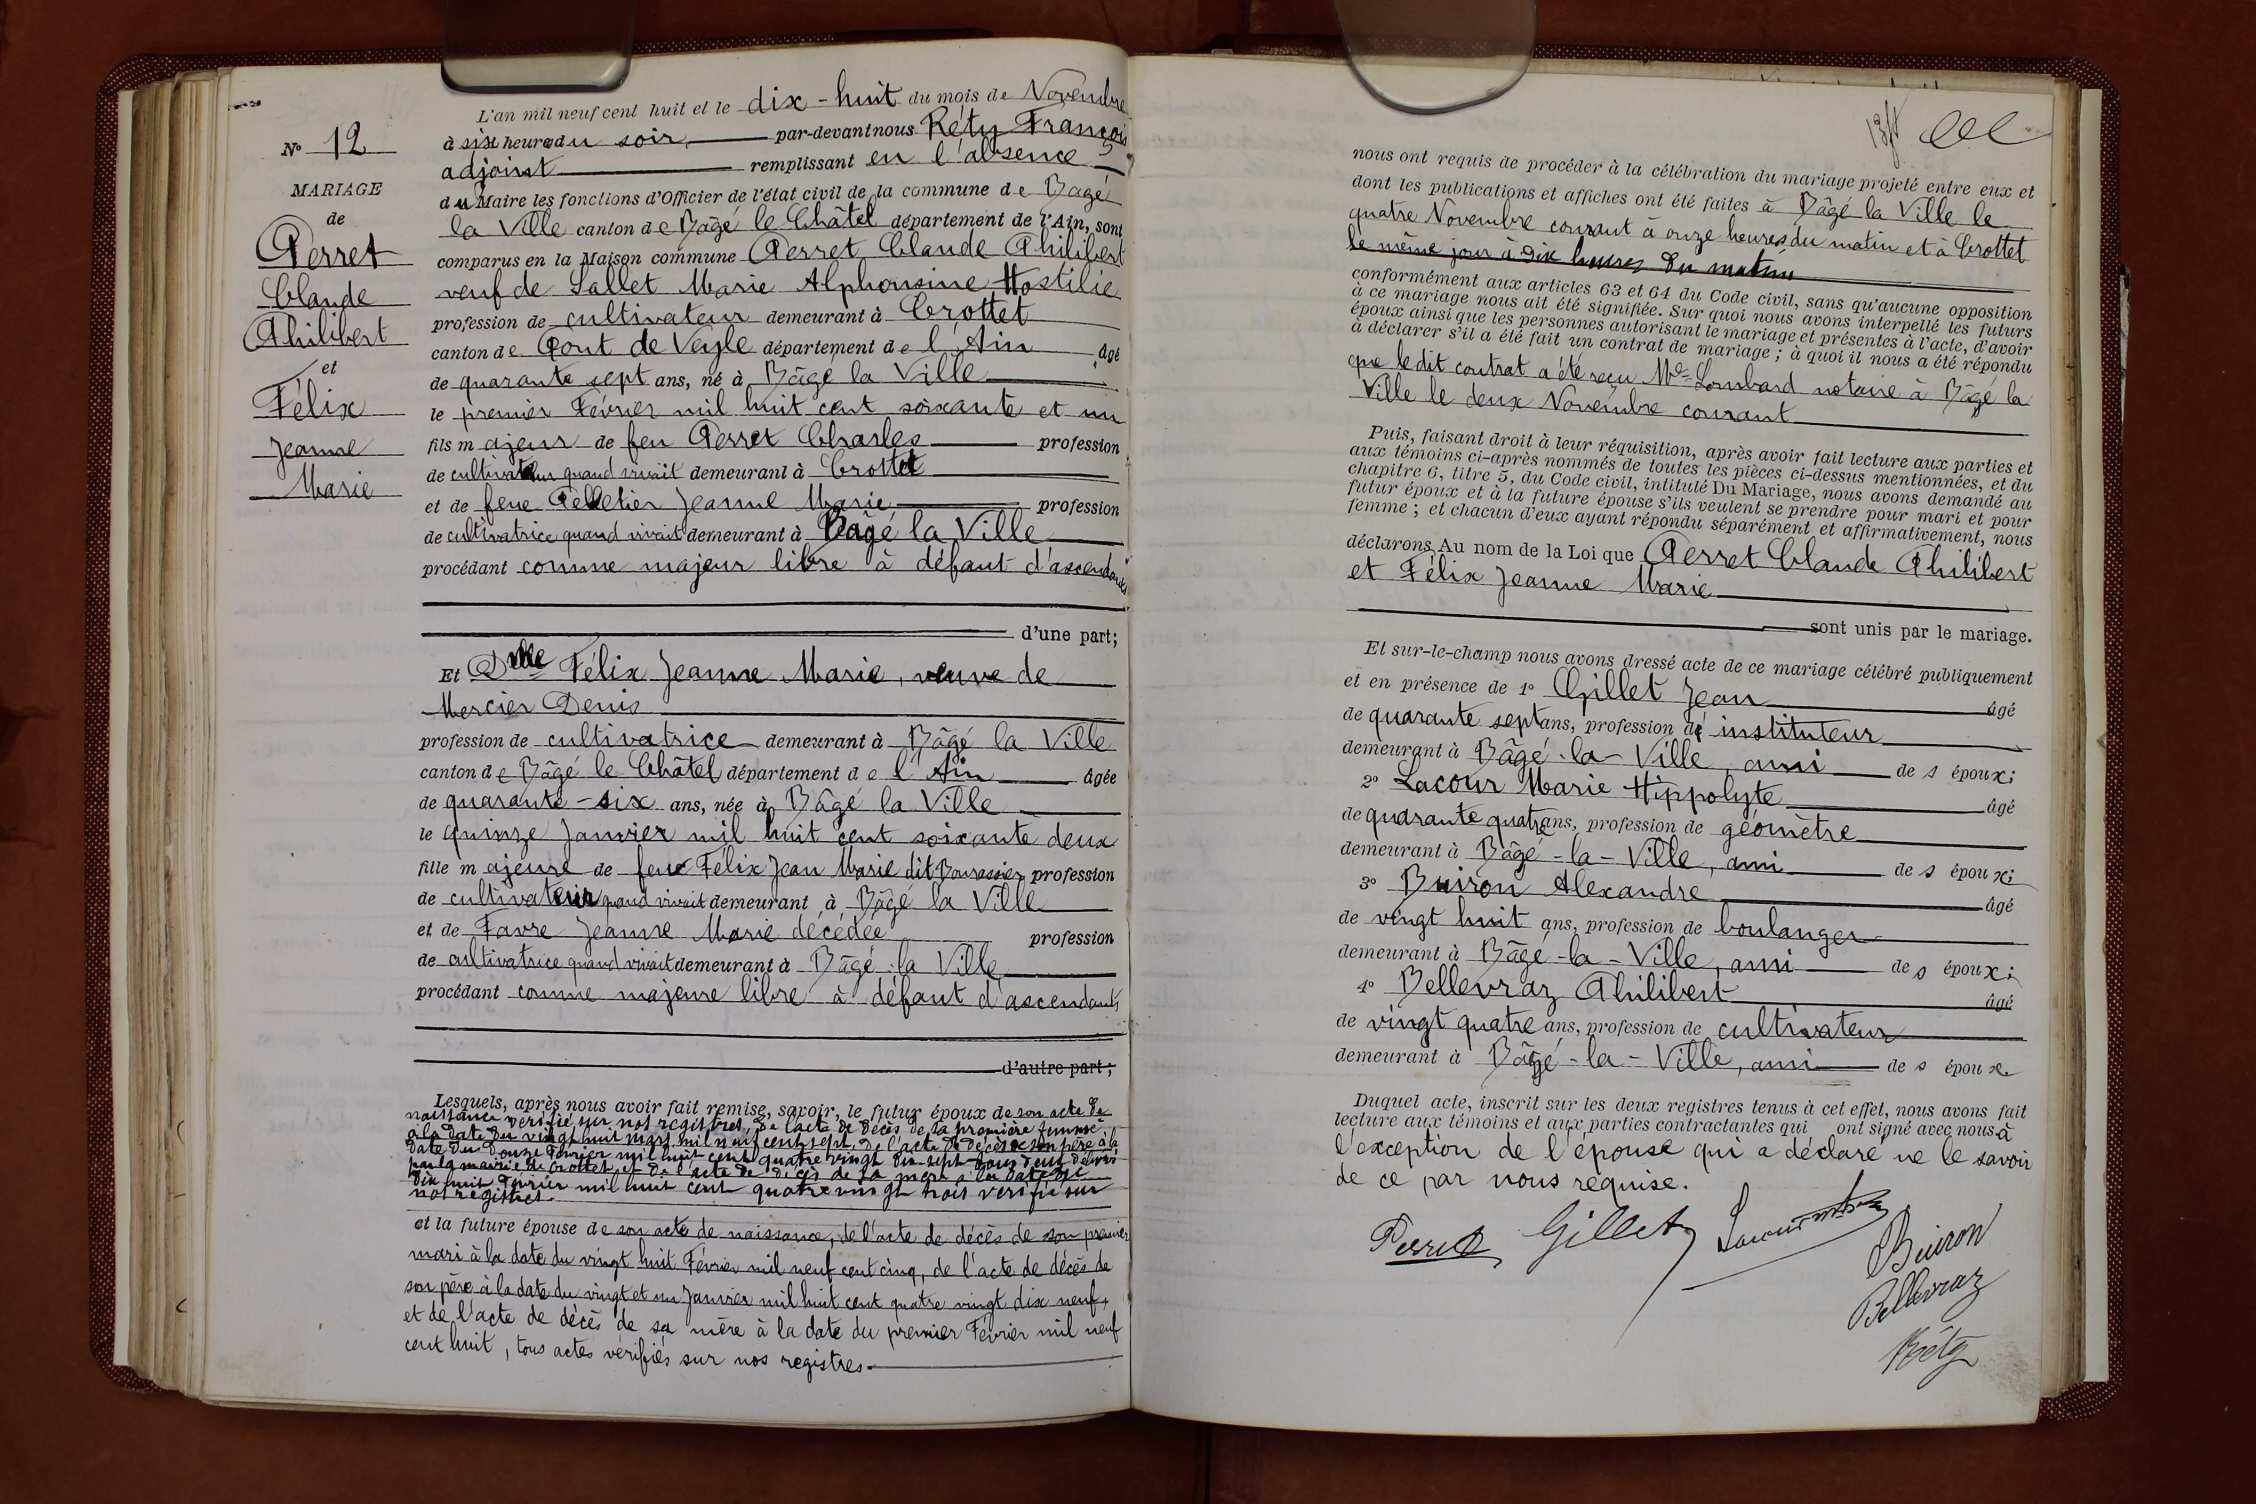 N° 12
MARIAGE
de
Perret
Claude
Philibert
et
Félix
Jeanne
Marie
L'an mil neuf cent huit et le dix-huit du mois de Novembre
à six heures du soir, par-devant nous Réty François
adjoint remplissant en l'absence
du Maire les fonctions d'Officier de l'état civil de la commune de Bagé
la Ville canton de Bâgé le Châtel département de l'Ain, sont
comparus en la Maison commune Perret Claude Philibert
veuf de Sallet Marie Alphonsine Hostilie
profession de cultivateur demeurant à Crottet
canton de Pont de Veyle département de l'Ain âgé
de quarante sept ans, né à Bâgé la Ville
le premier Février mil huit cent soixante et un
fils majeur de feu Perret Charles profession
de cultivateur quand vivait demeurant à Crottet
et de feue Pelletier Jeanne Marie, profession
de cultivatrice quand vivait demeurant à Bagé la Ville
procédant comme majeur libre à défaut d'ascendants
d'une part;
Et Delle Félix Jeanne Marie, veuve de
Mercier Denis
profession de cultivatrice demeurant à Bâgé la Ville
canton de Bâgé le Châtel département de l'Ain âgée
de quarante-six ans, née à Bâgé la Ville
le quinze Janvier mil huit cent soixante deux
fille majeure de feue Félix Jean Marie dit profession
de cultivateur quand vivait demeurant à Bâgé la Ville
et de Favre Jeanne Marie décédée profession
de cultivatrice quand vivait demeurant à Bâgé-la Ville
procédant comme majeure libre à défaut d'ascendants
d'autre part;
Lesquels, après nous avoir fait remise, savoir, le futur époux de son acte de
naissance vérifié sur nos registres, de l'acte de décès de sa première femme
à la date du vingt huit mars mil neuf cent sept, de l'acte de décès de son père à la
date du douze Février mil huit cent quatre vingt dix-sept tous deux délivrés
par la mairie de Crottet et de l'acte de décès de sa mère à la date de
dix huit Février mil huit cent quatre vingt trois vérifié sur
nos registres
et la future épouse de son acte de naissance, de l'acte de décès de son premier
mari à la date du vingt huit Février mil neuf cent cinq, de l'acte de décès de
son père à la date du vingt et un Janvier mil huit cent quatre vingt dix neuf,
et de l'acte de décès de sa mère à la date du premier Février mil neuf
cent huit, tous actes vérifiés sur nos registres.
nous ont requis de procéder à la célébration du mariage projeté entre eux et
dont les publications et affiches ont été faites à Bâgé la Ville le
quatre Novembre courant à onze heures du matin et à Crottet
le même jour à dix heures du matin
conformément aux articles 63 et 64 du Code civil, sans qu'aucune opposition
à ce mariage nous ait été signifiée. Sur quoi nous avons interpellé les futurs
époux ainsi que les personnes autorisant le mariage et présentes à l'acte, d'avoir
à déclarer s'il a été fait un contrat de mariage; à quoi il nous a été répondu
que le dit contrat a été reçu Me Lombard notaire à Bâgé la
Ville le deux Novembre courant
Puis, faisant droit à leur réquisition, après avoir fait lecture aux parties et
aux témoins ci-après nommés de toutes les pièces ci-dessus mentionnées, et du
chapitre 6, titre 5, du Code civil, intitulé Du Mariage, nous avons demandé au
futur époux et à la future épouse s'ils veulent se prendre pour mari et pour
femme; et chacun d'eux ayant répondu séparément et affirmativement, nous
déclarons Au nom de la Loi que Perret Claude Philibert
et Félix Jeanne Marie
sont unis par le mariage.
Et sur-le-champ nous avons dressé acte de ce mariage célébré publiquement
et en présence de 1° Gillet Jean âgé
de quarante sept ans, profession de instituteur
demeurant à Bâgé-la-Ville, ami des époux;
2° Lacour Marie Hippolyte âgé
de quarante quatre ans, profession de géomètre
demeurant à Bâgé-la-Ville, ami des époux;
3° Buiron Alexandre âgé
de vingt huit ans, profession de boulanger
demeurant à Bâgé-la-Ville, ami des époux;
4° Bellevraz Philibert âgé
de vingt quatre ans, profession de cultivateur
demeurant à Bâgé-la-Ville, ami des époux
Duquel acte, inscrit sur les deux registres tenus à cet effet, nous avons fait
lecture aux témoins et aux parties contractantes qui ont signé avec nous à
l'exception de l'épouse qui a déclaré ne le savoir
de ce par nous requise.
Perret Gillet Lacour
Buiron
Bellevraz
Réty